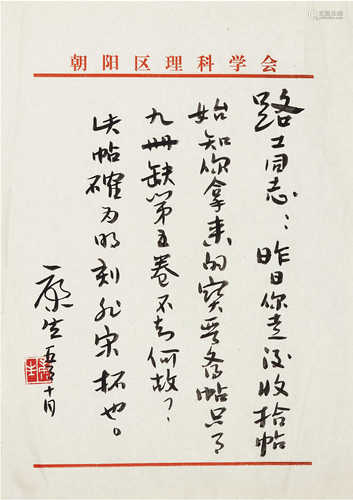 朝阳区理科学会
路工同志：昨日你走後收拾帖
始知你拿来的寶晋斋帖只有
九冊缺第五卷不知何故？
此帖確为明刻非宋拓也。
康生